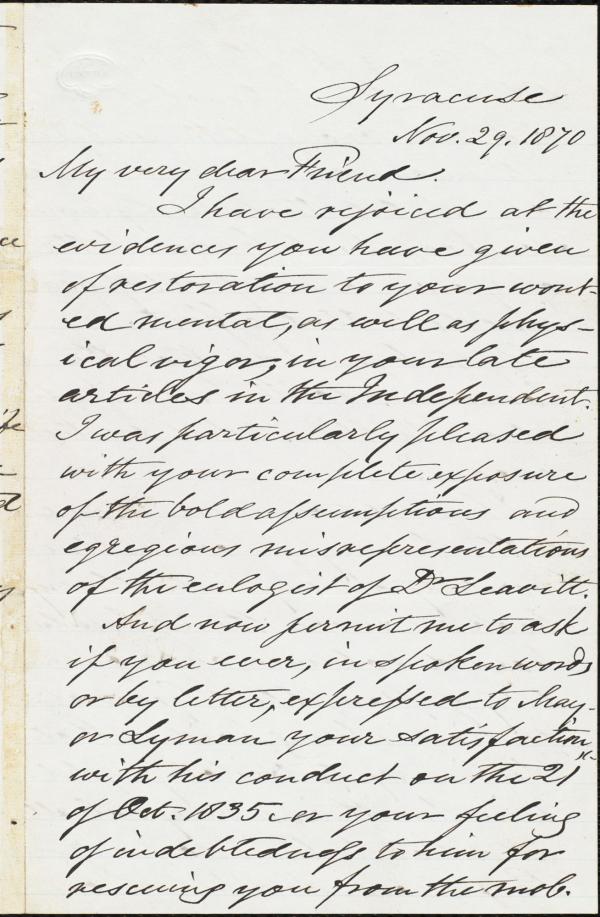 Syracuse
Nov. 29. 1870
My very dear Friend.
I have rejoiced at the
evidences you have given
of restoration to your wont-
ed mental, as well as phys-
ical vigor, in your late
articles in the Independent.
I was particularly pleased
with your complete exposure
of the bold assumptions and
egregious misrepresentations
of the eulogist of Dr Leavitt.
And now permit me to ask
if you ever, in spoken words
or by letter, expressed to May-
or Lyman your satisfaction
with his conduct on the 21st
of Oct. 1835, or your feeling
of indebtedness to him for
rescuing you from the mob.